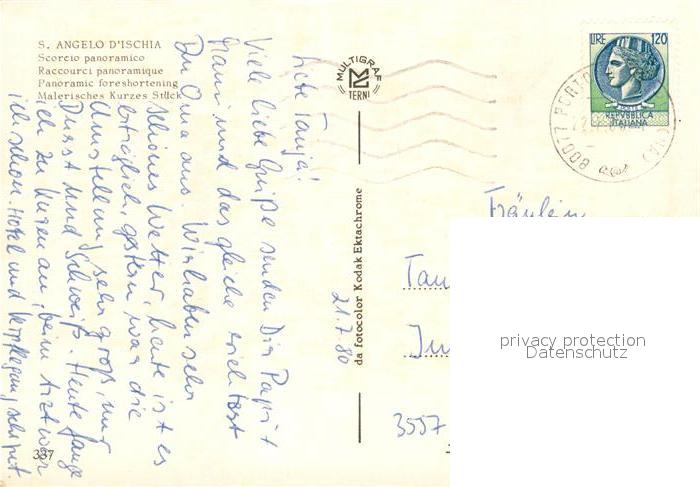 S. ANGELO D'ISCHIA
Scorcio panoramico
Raccourci panoramique
Panoramic foreshortening
Malerisches Kurzes Stück
MULTIGRAF
TERNI
LIRE 120
REPVBBLICA
ITALIANA
80077 PORTO
Liebe Tanja!
Viele liebe Grüße senden Dir Papi +
Mami und das gleiche richtest
Du Oma aus. Wir haben sehr
schönes Wetter, heute ist es
erträglich, gestern war die
Umstellung sehr groß, nur
Durst und Schweiß. Heute fange
ich zu kuren an, beim Arzt war
ich schon. Hotel und Verpflegung sehr gut.
da fotocolor Kodak Ektachrome
21.7.80
Fräulein
3557
337
privacy protection
Datenschutz